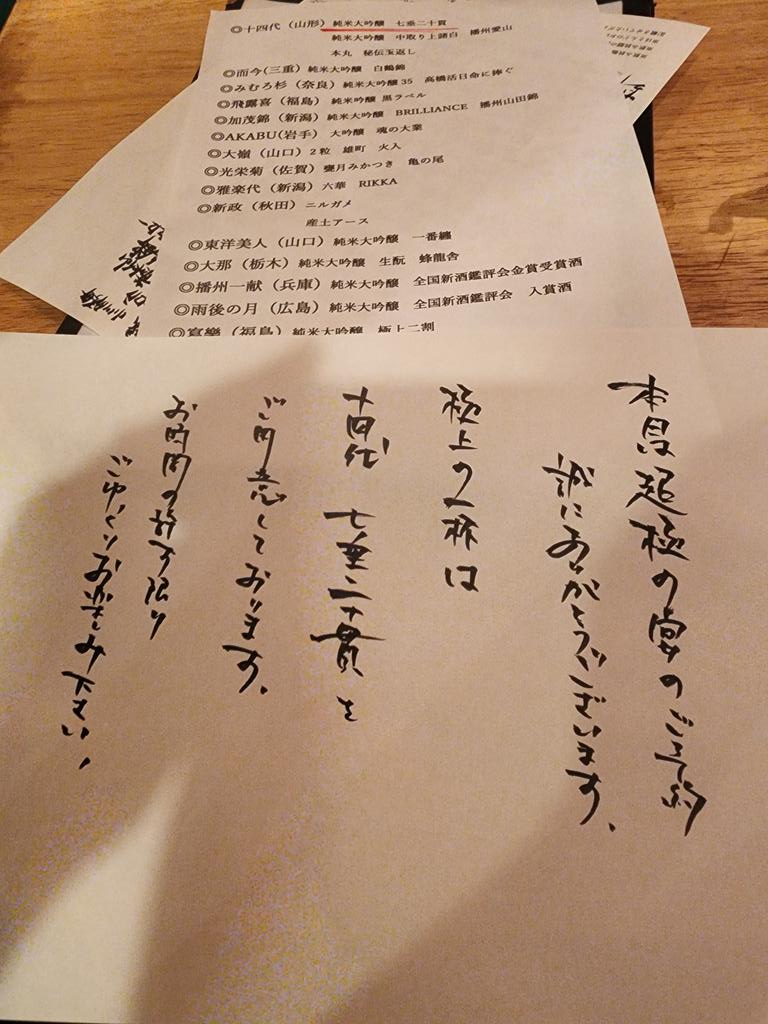 ◎十四代（山形）純米大吟醸　七垂二十貫
純米大吟醸　中取り上諸白　播州愛山
本丸　秘伝玉返し
◎而今(三重）純米大吟醸　白鶴錦
◎みむろ杉（奈良）純米大吟醸35　高橋活日命に捧ぐ
◎飛露喜（福島）純米吟醸 黒ラベル
◎加茂錦（新潟）純米大吟醸　BRILLIANCE　播州山田錦
◎AKABU(岩手）大吟醸　魂の大業
◎大嶺（山口）2粒　雄町　火入
◎光栄菊（佐賀）甕月みかつき　亀の尾
◎雅楽代（新潟）六華　RIKKA
◎新政（秋田）ニルガメ
産土アース
◎東洋美人（山口）純米大吟醸　一番纏
◎大那（栃木）純米大吟醸　生酛　蜂龍舎
◎播州一献（兵庫）純米大吟醸　全国新酒鑑評会金賞受賞酒
◎雨後の月（広島）純米大吟醸　全国新酒鑑評会　入賞酒
◎寫樂（福島）純米大吟醸　極上二割
本日は超極の宴のご予約
誠にありがとうございます。
極上の一杯は
十四代　七垂二十貫を
ご用意しております。
お時間の許す限り
ごゆっくりお楽しみ下さい！